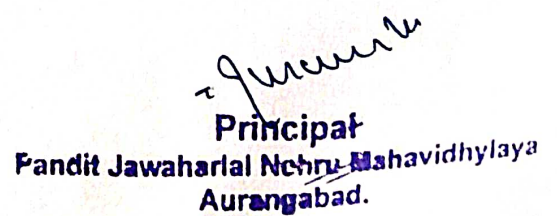 Principal
Pandit Jawaharlal Nehru Mahavidhylaya
Aurangabad.